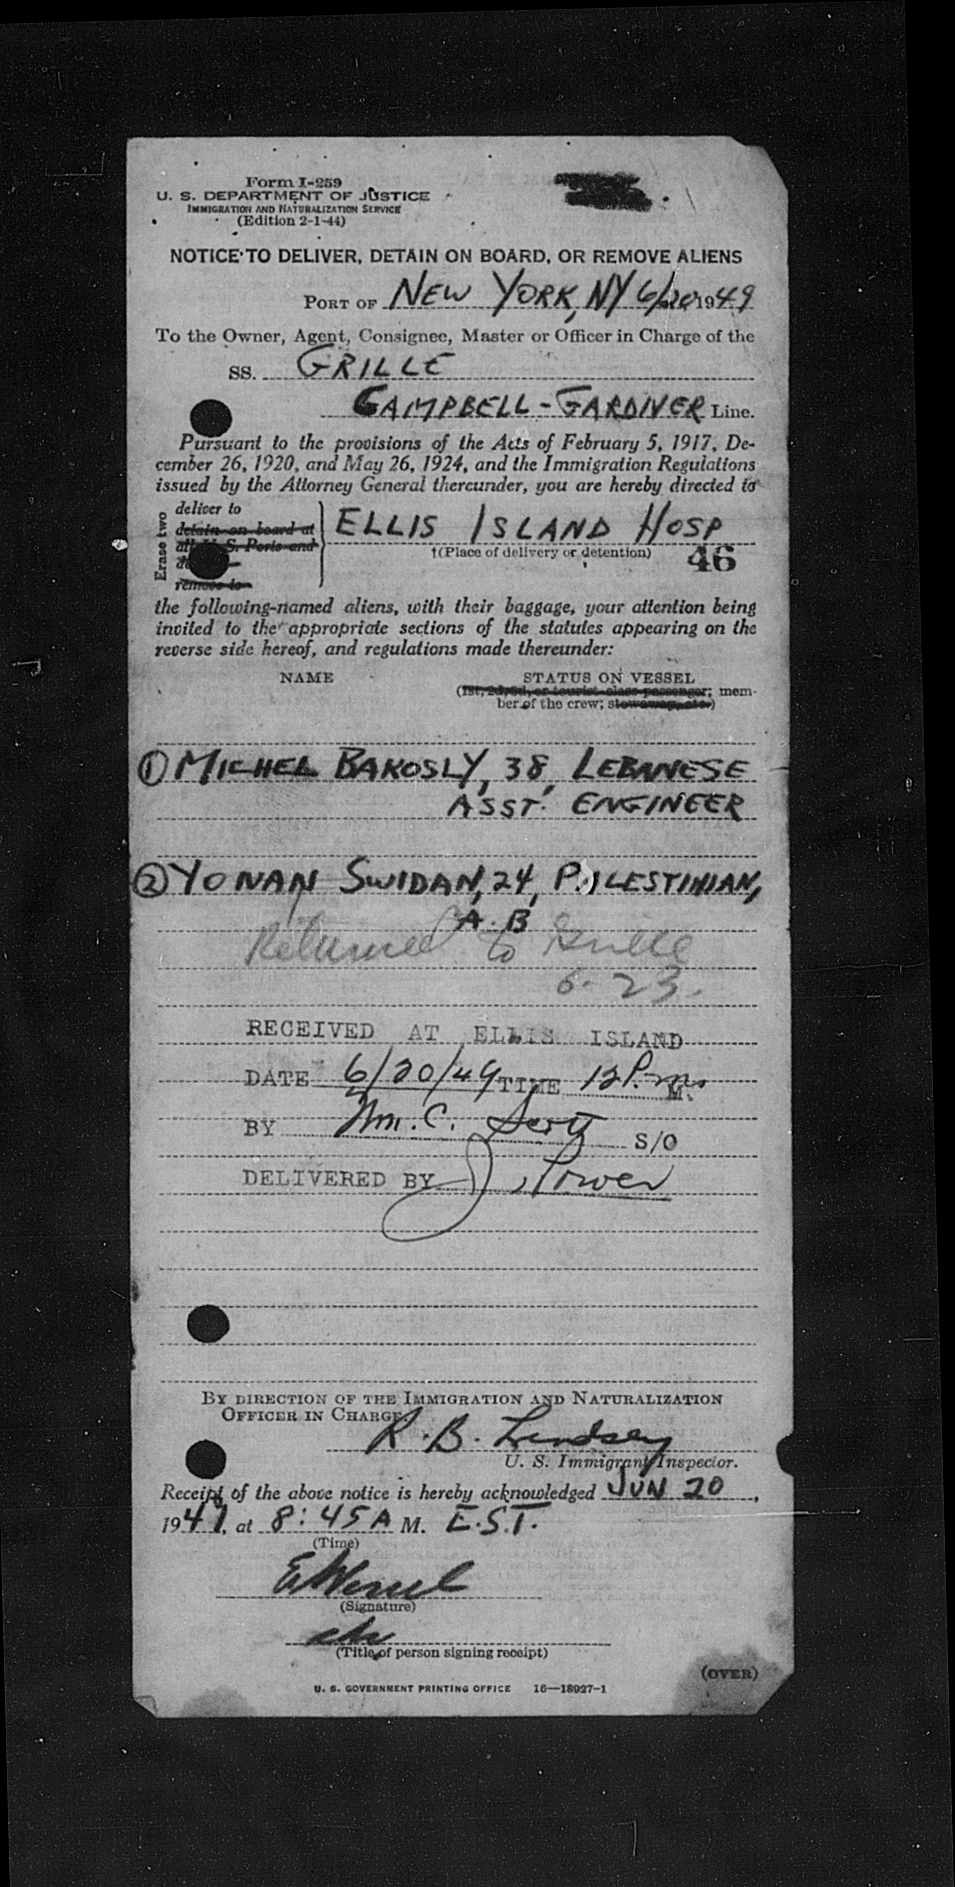 Form I-259
U. S. DEPARTMENT OF JUSTICE
IMMIGRATION AND NATURALIZATION SERVICE
(Edition 2-1-44)
NOTICE TO DELIVER, DETAIN ON BOARD, OR REMOVE ALIENS
PORT OF NEW YORK, NY 6/20 1949
To the Owner, Agent, Consignee, Master or Officer in Charge of the
SS. GRILLE
CAMPBELL-GARDINER Line.
Pursuant to the provisions of the Acts of February 5, 1917, De-
cember 26, 1920, and May 26, 1924, and the Immigration Regulations
issued by the Attorney General thereunder, you are hereby directed to
Erase two
deliver to
detain on board at
all U. S. Ports and
remove to
ELLIS ISLAND HOSP
†(Place of delivery or detention)
46
the following-named aliens, with their baggage, your attention being
invited to the appropriate sections of the statutes appearing on the
reverse side hereof, and regulations made thereunder:
NAME STATUS ON VESSEL
(1st, 2d, 3d, or tourist class passenger; mem-
ber of the crew; stowaway, etc.)
① MICHEL BAKOSLY, 38, LEBANESE
ASST. ENGINEER
② YONAN SWIDAN, 24, PALESTINIAN,
A.B
Returned to Grille
6-23.
RECEIVED AT ELLIS ISLAND
DATE 6/20/49 TIME 12 P.m. M.
BY Wm. C. Scott S/O
DELIVERED BY J. Power
BY DIRECTION OF THE IMMIGRATION AND NATURALIZATION
OFFICER IN CHARGE
R. B. Lindsey
U. S. Immigrant Inspector.
Receipt of the above notice is hereby acknowledged JUN 20,
1949, at 8:45 A M. E.S.T.
(Time)
(Signature)
(Title of person signing receipt)
(OVER)
U. S. GOVERNMENT PRINTING OFFICE 16—18927-1